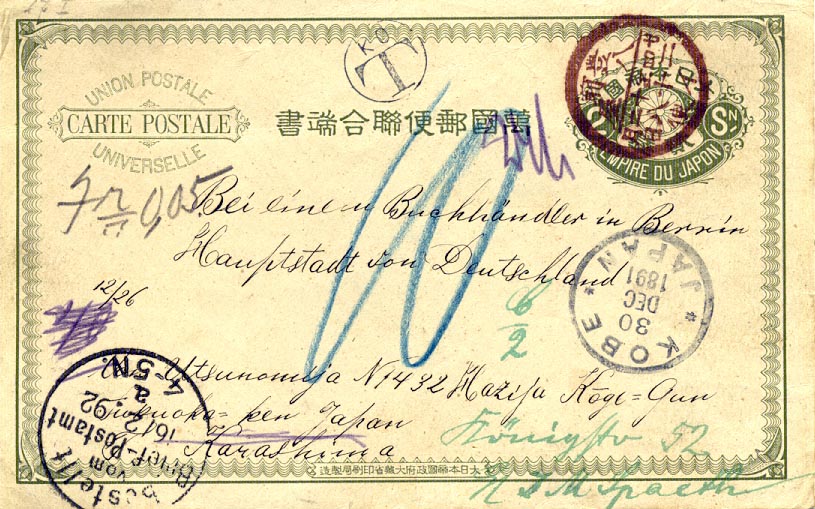 UNION POSTALE
CARTE POSTALE
UNIVERSELLE
KO
T
萬國郵便聯合端書
Sn
EMPIRE DU JAPON
0,05
10
Bei einem Buchhändler in Berrin
Hauptstadt von Deutschland
KOBE JAPAN
30
DEC
1891
12/26
6
2
Utsunomija N1432 Hazija Kōge=Gun
Fukuoka=ken Japan
Karashima
Königstr 52
Spaeth
Bestellt
vom
Brief-Postamt
16/2 92
a.
4-5N.
大日本帝國政府大藏省印刷局製造